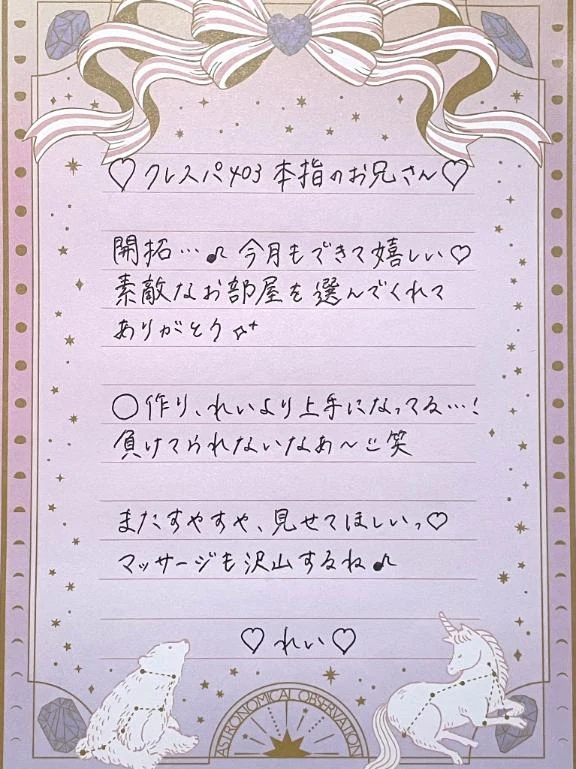 ♡クレスパ403 本指のお兄さん♡
開拓…♪ 今月もできて嬉しい♡
素敵なお部屋を選んでくれて
ありがとう✧⁺
○作り、れいより上手になってる…!
負けてられないなぁ〜ご笑
またすやすや、見せてほしいっ♡
マッサージも沢山するね♪
♡れい♡
ASTRONOMICAL OBSERVATION